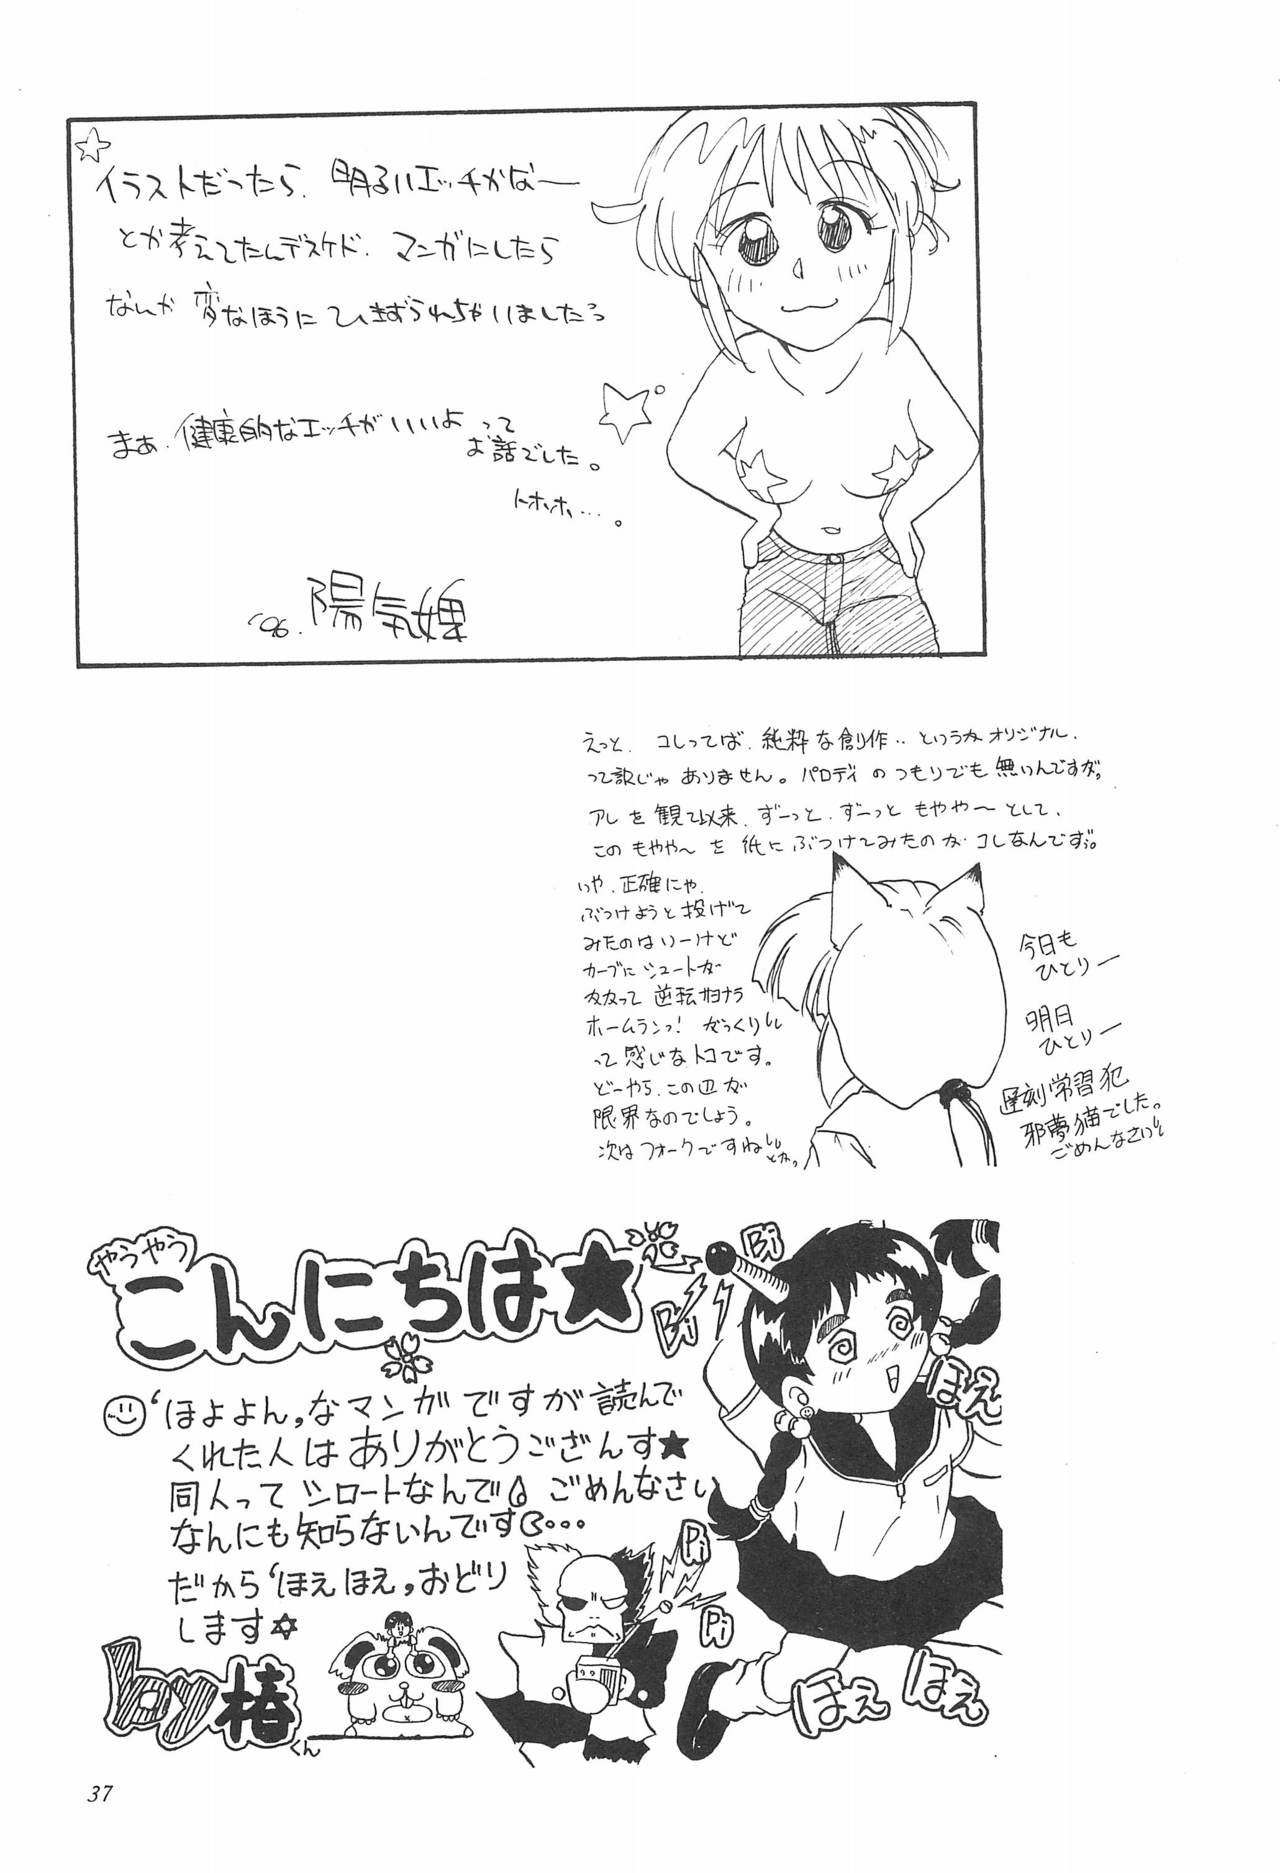 イラストだったら、明るいエッチかなー
とか考えてたんデスケド、マンガにしたら
なんか変なほうにひきずられちゃいましたっ
まぁ、健康的なエッチがいいよって
お話でした。
トホホ…。
'96. 陽気婢
えっと、コレってば、純粋な創作‥というかオリジナル、
って訳じゃありません。パロディのつもりでも無いんですが。
アレを観て以来、ずーっと、ずーっともやや〜として、
このもやや〜を紙にぶつけてみたのが、コレなんです。
いや、正確にゃ、
ぶつけようと投げて
みたのはいーけど
カーブにシュートが
かかって逆転サヨナラ
ホームランっ! がっくり
って感じなトコです。
どーやら、この辺が
限界なのでしょう。
次はフォークですね
とか。
今日も
ひとりー
明日
ひとりー
遅刻常習犯
邪夢猫でした。
ごめんなさい
やうやう
こんにちは★
'ほよよん,なマンガですが読んで
くれた人はありがとうござんす★
同人ってシロートなんで ごめんなさい
なんにも知らないんです…
だから'ほえほえ,おどり
します☆
by 椿
くん
Bi
Bi
Pi
Pi
ほえ
ほえ
ほえ
37